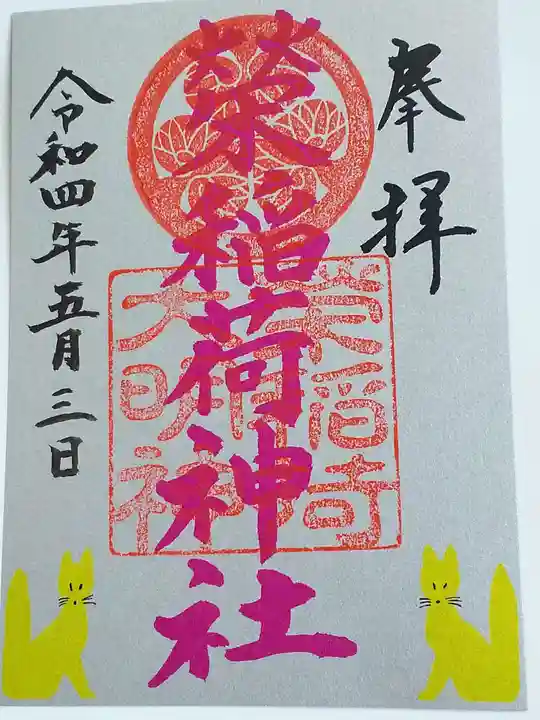 奉拝
榮稲荷神社
榮稲荷
大明神
令和四年五月三日